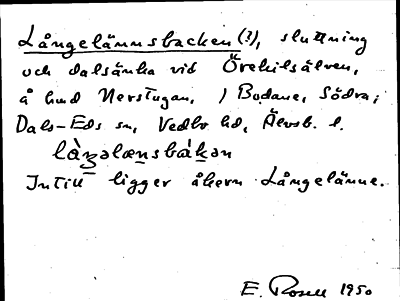 Långelännsbacken (?), sluttning
och dalsänka vid Örekilsälven,
å hmd Nerstugan, i Bodane, Södra;
Dals-Eds sn, Vedbo hd, Älvsb. l.
làŋəlænsbàkən
Intill ligger åkern Långelänne.
E. Rosell 1950